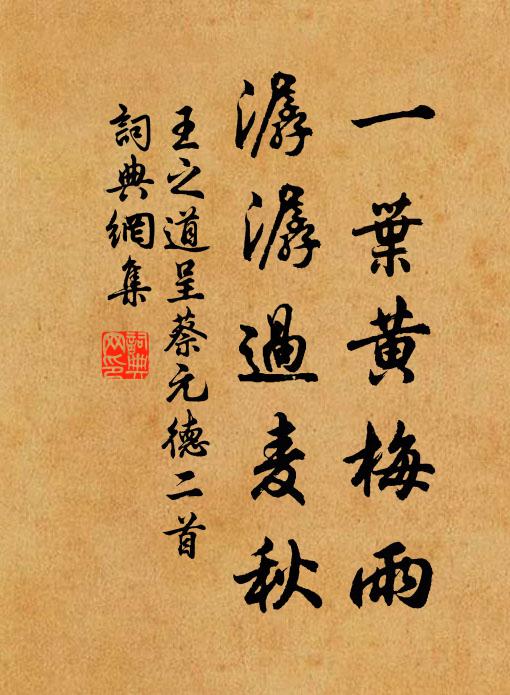 一葉黄梅雨
潺潺過麦秋
王之道呈蔡元德二首
詞典網集
詞典網印